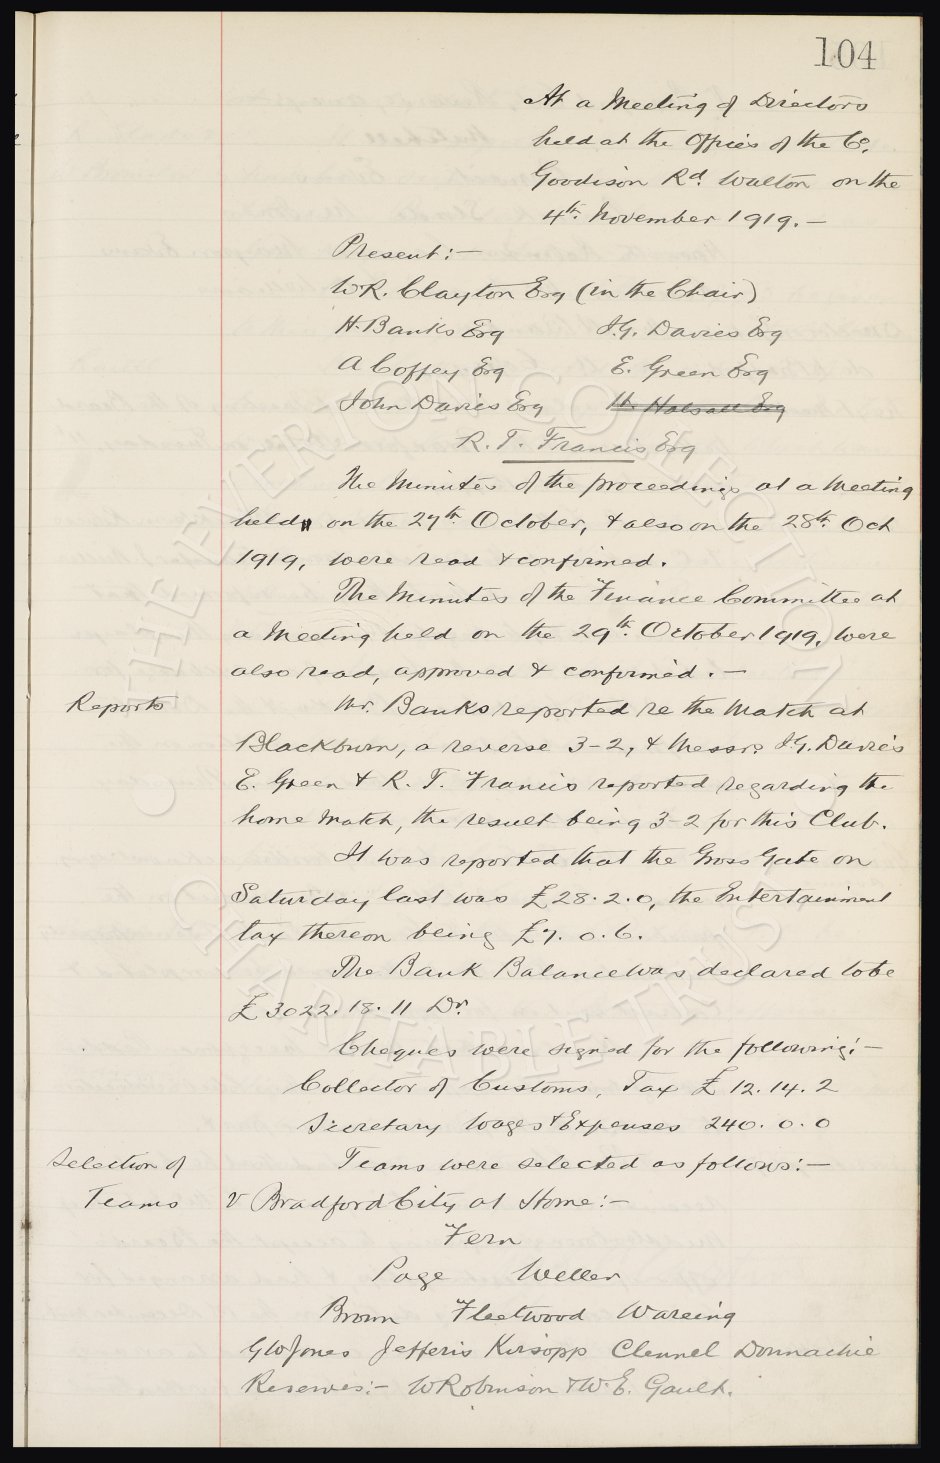 104
At a Meeting of Directors
held at the Offices of the Co.
Goodison Rd. Walton on the
4th. November 1919. —
Present:—
W.R. Clayton Esq (in the Chair)
H. Banks Esq J.G. Davies Esq
A Coffey Esq E. Green Esq
John Davies Esq H. Halsall Esq
R. T. Francis Esq
The Minutes of the proceedings at a Meeting
held on the 27th. October, & also on the 28th. Oct
1919, were read & confirmed.
The Minutes of the Finance Committee at
a Meeting held on the 29th. October 1919, were
also read, approved & confirmed. —
Reports Mr. Banks reported re the Match at
Blackburn, a reverse 3-2, & Messrs J.G. Davies
E. Green & R. T. Francis reported regarding the
home Match, the result being 3-2 for this Club.
It was reported that the Gross Gate on
Saturday last was £28.2.0, the Entertainment
tax thereon being £7.0.6.
The Bank Balance was declared to be
£3022.18.11 Dr.
Cheques were signed for the following:—
Collector of Customs, Tax £12.14.2
Secretary Wages & Expenses 240.0.0
Selection of Teams were selected as follows:—
Teams v Bradford City at Home:—
Fern
Page Weller
Brown Fleetwood Wareing
G W Jones Jefferis Kirsopp Clennel Donnachie
Reserves:— W Robinson & W. E. Gault.
THE EVERTON COLLECTION
CHARITABLE TRUST